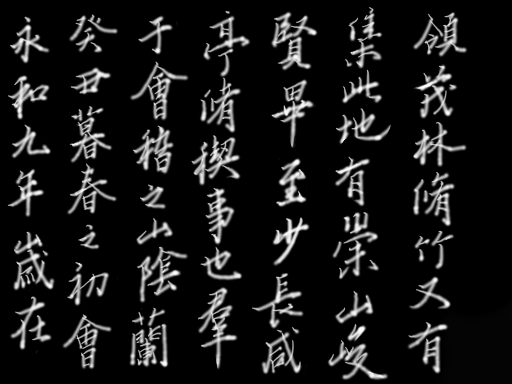 永和九年歲在
癸丑暮春之初會
于會稽之山陰蘭
亭脩稧事也羣
賢畢至少長咸
集此地有崇山峻
領茂林脩竹又有